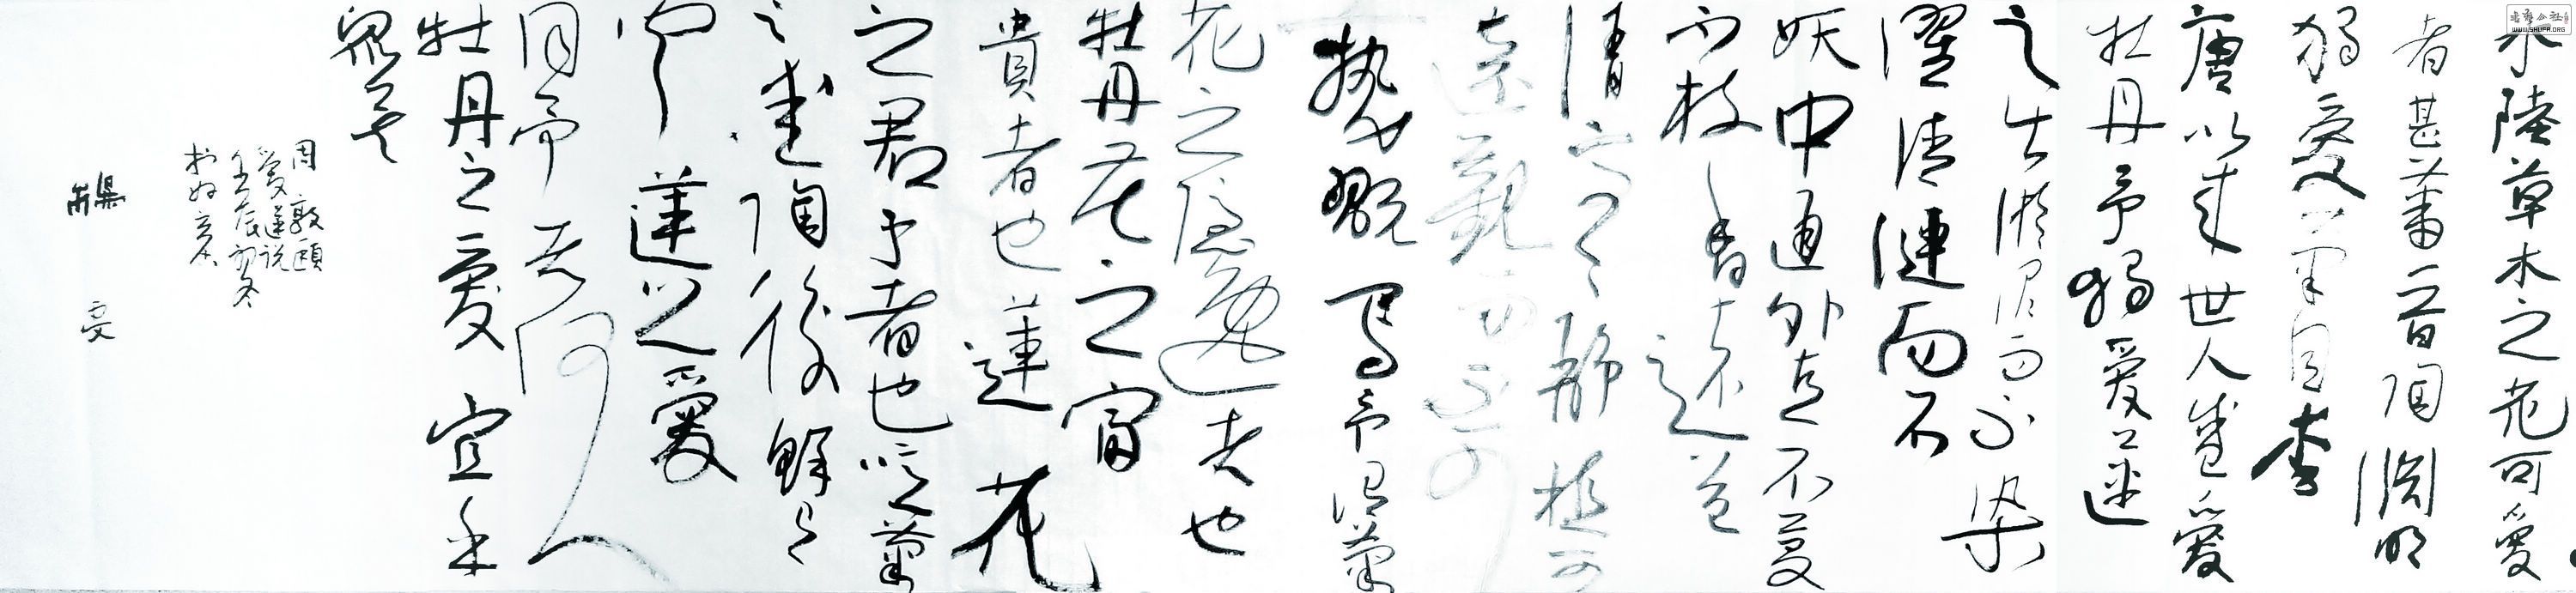 水陸草木之花可愛
者甚蕃晉陶淵明
獨愛菊自李
唐以来世人盛愛
牡丹予獨愛蓮
之出淤泥而不染
濯清漣而不
妖中通外直不蔓
不枝香遠益
清亭亭静植可
遠觀而不可
褻翫焉予謂菊
花之隱逸者也
牡丹花之富
貴者也蓮花
之君子者也噫菊
之愛陶後鮮有
聞蓮之愛
同予者何人
牡丹之愛宜乎
眾矣
周敦頤
愛蓮説
壬辰初冬
WWW.SHUFA.ORG